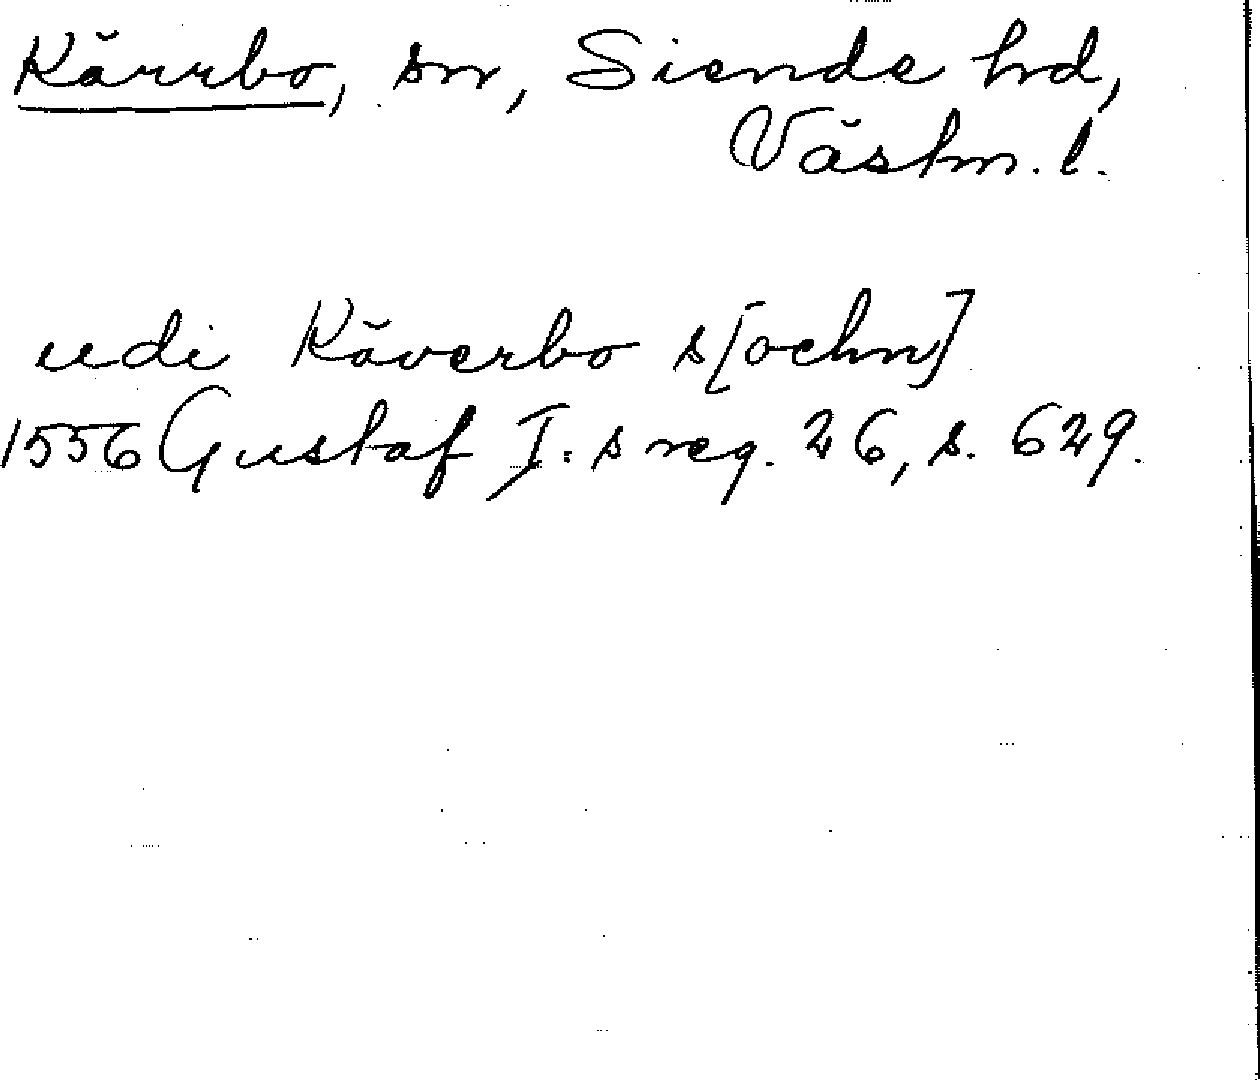 Kärrbo, sn, Siende hd,
Västm. l.
udi Käverbo s[ochn]
1556 Gustaf I:s reg. 26, s. 629.